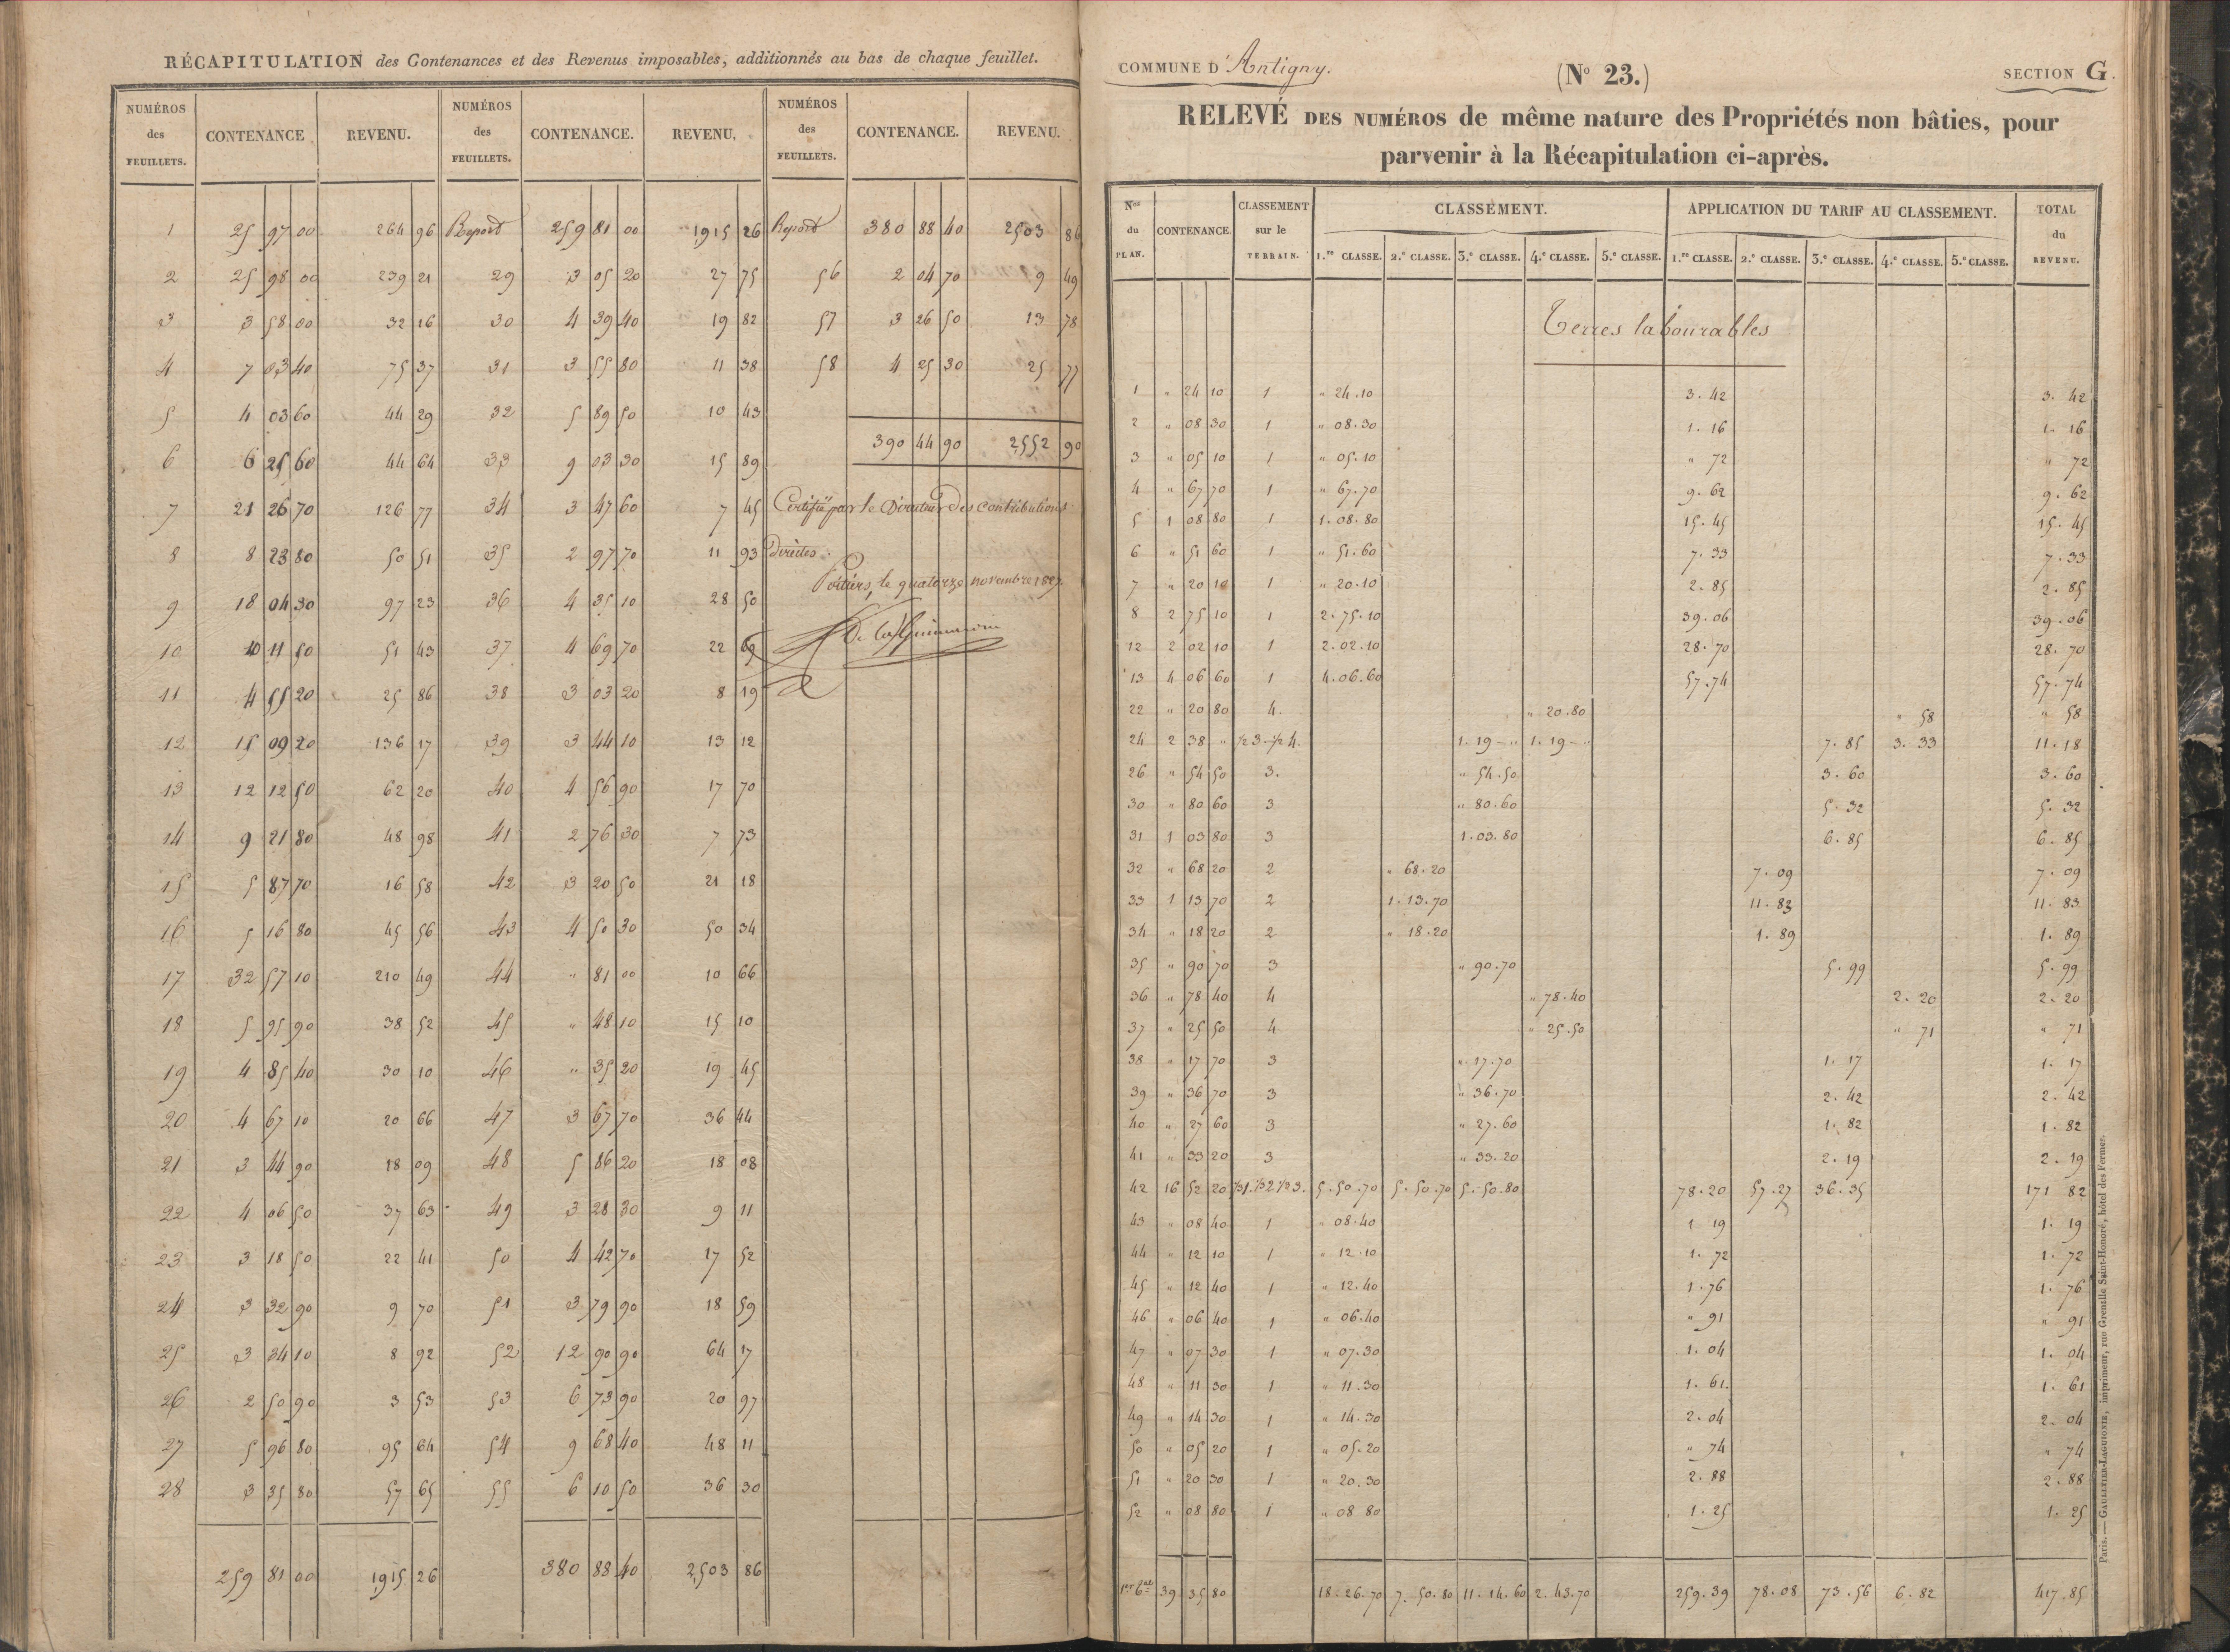 RÉCAPITULATION des Contenances et des Revenus imposables, additionnés au bas de chaque feuillet.
NUMÉROS des FEUILLETS. CONTENANCE REVENU. NUMÉROS des FEUILLETS. CONTENANCE. REVENU. NUMÉROS des FEUILLETS. CONTENANCE. REVENU.
1 25 97 00 264 96 Report 259 81 00 1915 26 Report 380 88 40 2503 86
2 25 98 00 239 21 29 3 05 20 27 75 56 2 04 70 9 49
3 3 58 00 32 16 30 4 39 40 19 82 57 3 26 50 13 78
4 7 03 40 75 37 31 3 55 80 11 38 58 4 25 30 25 77
5 4 03 60 44 29 32 5 89 50 10 43
390 44 90 2552 90
6 6 25 60 44 64 33 9 03 30 15 89
7 21 26 70 126 77 34 3 47 60 7 45 Certifié par le Directeur des contributions
8 8 23 80 50 51 35 2 97 70 11 93 Directes.
Poitiers, le quatorze novembre 1837.
9 18 04 30 97 23 36 4 35 10 28 50
10 10 11 50 51 43 37 4 69 70 22 69
11 4 55 20 25 86 38 3 03 20 8 19
12 15 09 20 136 17 39 3 44 10 13 12
13 12 12 50 62 20 40 4 56 90 17 70
14 9 21 80 48 98 41 2 76 30 7 73
15 5 87 70 16 58 42 3 20 50 21 18
16 5 16 80 45 56 43 4 50 30 50 34
17 32 57 10 210 49 44 " 81 00 10 66
18 5 95 90 38 52 45 " 48 10 15 10
19 4 85 40 30 10 46 " 35 20 19 45
20 4 67 10 20 66 47 3 67 70 36 44
21 3 44 90 18 09 48 5 86 20 18 08
22 4 06 50 37 63 49 3 28 30 9 11
23 3 18 50 22 41 50 4 42 70 17 52
24 3 32 90 9 70 51 3 79 90 18 59
25 3 34 10 8 92 52 12 90 90 64 17
26 2 50 90 3 53 53 6 73 90 20 97
27 5 96 80 95 64 54 9 68 40 48 11
28 3 35 80 57 65 55 6 10 50 36 30
259 81 00 1915 26 380 88 40 2503 86
COMMUNE D'Antigny. (No 23.) SECTION G.
RELEVÉ DES NUMÉROS de même nature des Propriétés non bâties, pour
parvenir à la Récapitulation ci-après.
Nos du PLAN. CONTENANCE. CLASSEMENT sur le TERRAIN. CLASSEMENT. APPLICATION DU TARIF AU CLASSEMENT. TOTAL du REVENU.
1.re CLASSE. 2.e CLASSE. 3.e CLASSE. 4.e CLASSE. 5.e CLASSE. 1.re CLASSE. 2.e CLASSE. 3.e CLASSE. 4.e CLASSE. 5.e CLASSE.
Terres labourables
1 " 24 10 1 " 24.10 3.42 3.42
2 " 08 30 1 " 08.30 1.16 1.16
3 " 05 10 1 " 05.10 " 72 " 72
4 " 67 70 1 " 67.70 9.62 9.62
5 1 08 80 1 1.08.80 15.45 15.45
6 " 51 60 1 " 51.60 7.33 7.33
7 " 20 10 1 " 20.10 2.85 2.85
8 2 75 10 1 2.75.10 39.06 39.06
12 2 02 10 1 2.02.10 28.70 28.70
13 4 06 60 1 4.06.60 57.74 57.74
22 " 20 80 4. " 20.80 " 58 " 58
24 2 38 " 1/2 3-1/2 4. 1.19-" 1.19-" 7.85 3.33 11.18
26 " 54 50 3. " 54.50 3.60 3.60
30 " 80 60 3 " 80.60 5.32 5.32
31 1 03 80 3 1.03.80 6.85 6.85
32 " 68 20 2 " 68.20 7.09 7.09
33 1 13 70 2 1.13.70 11.83 11.83
34 " 18 20 2 " 18.20 1.89 1.89
35 " 90 70 3 " 90.70 5.99 5.99
36 " 78 40 4 " 78.40 2.20 2.20
37 " 25 50 4 " 25.50 " 71 " 71
38 " 17 70 3 " 17.70 1.17 1.17
39 " 36 70 3 " 36.70 2.42 2.42
40 " 27 60 3 " 27.60 1.82 1.82
41 " 33 20 3 " 33.20 2.19 2.19
42 16 52 20 1/3 1. 1/3 2 1/3 3. 5.50.70 5.50.70 5.50.80 78.20 57.27 36.35 171 82
43 " 08 40 1 " 08.40 1 19 1.19
44 " 12 10 1 " 12.10 1.72 1.72
45 " 12 40 1 " 12.40 1.76 1.76
46 " 06 40 1 " 06.40 " 91 " 91
47 " 07 30 1 " 07.30 1.04 1.04
48 " 11 30 1 " 11.30 1.61. 1.61
49 " 14 30 1 " 14.30 2.04 2.04
50 " 05 20 1 " 05.20 " 74 " 74
51 " 20 30 1 " 20.30 2.88 2.88
52 " 08 80 1 " 08 80 1.25 1.25
39 35 80 18.26.70 7.50.80 11.14.60 2.43.70 259.39 78.08 73.56 6.82 417.85
Paris. — GAULTIER-LAGUIONIE, imprimeur, rue Grenelle Saint-Honoré, hôtel des Fermes.